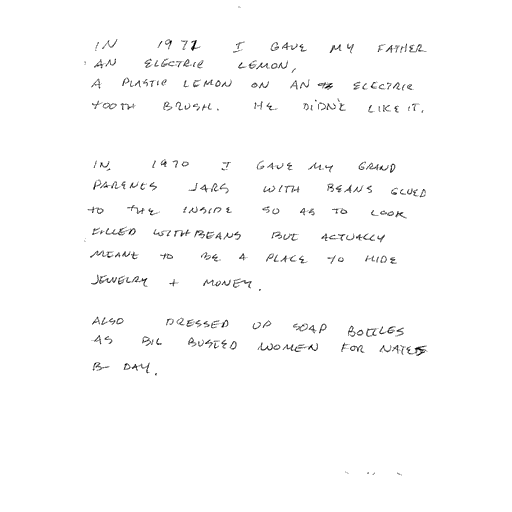 IN 1971 I GAVE MY FATHER
AN ELECTRIC LEMON,
A PLASTIC LEMON ON AN ELECTRIC
TOOTH BRUSH. HE DIDN'T LIKE IT.
IN 1970 I GAVE MY GRAND
PARENTS JARS WITH BEANS GLUED
TO THE INSIDE SO AS TO LOOK
FILLED WITH BEANS BUT ACTUALLY
MEANT TO BE A PLACE TO HIDE
JEWELRY + MONEY.
ALSO DRESSED UP SOAP BOTTLES
AS BIG BUSTED WOMEN FOR NATES
B- DAY.